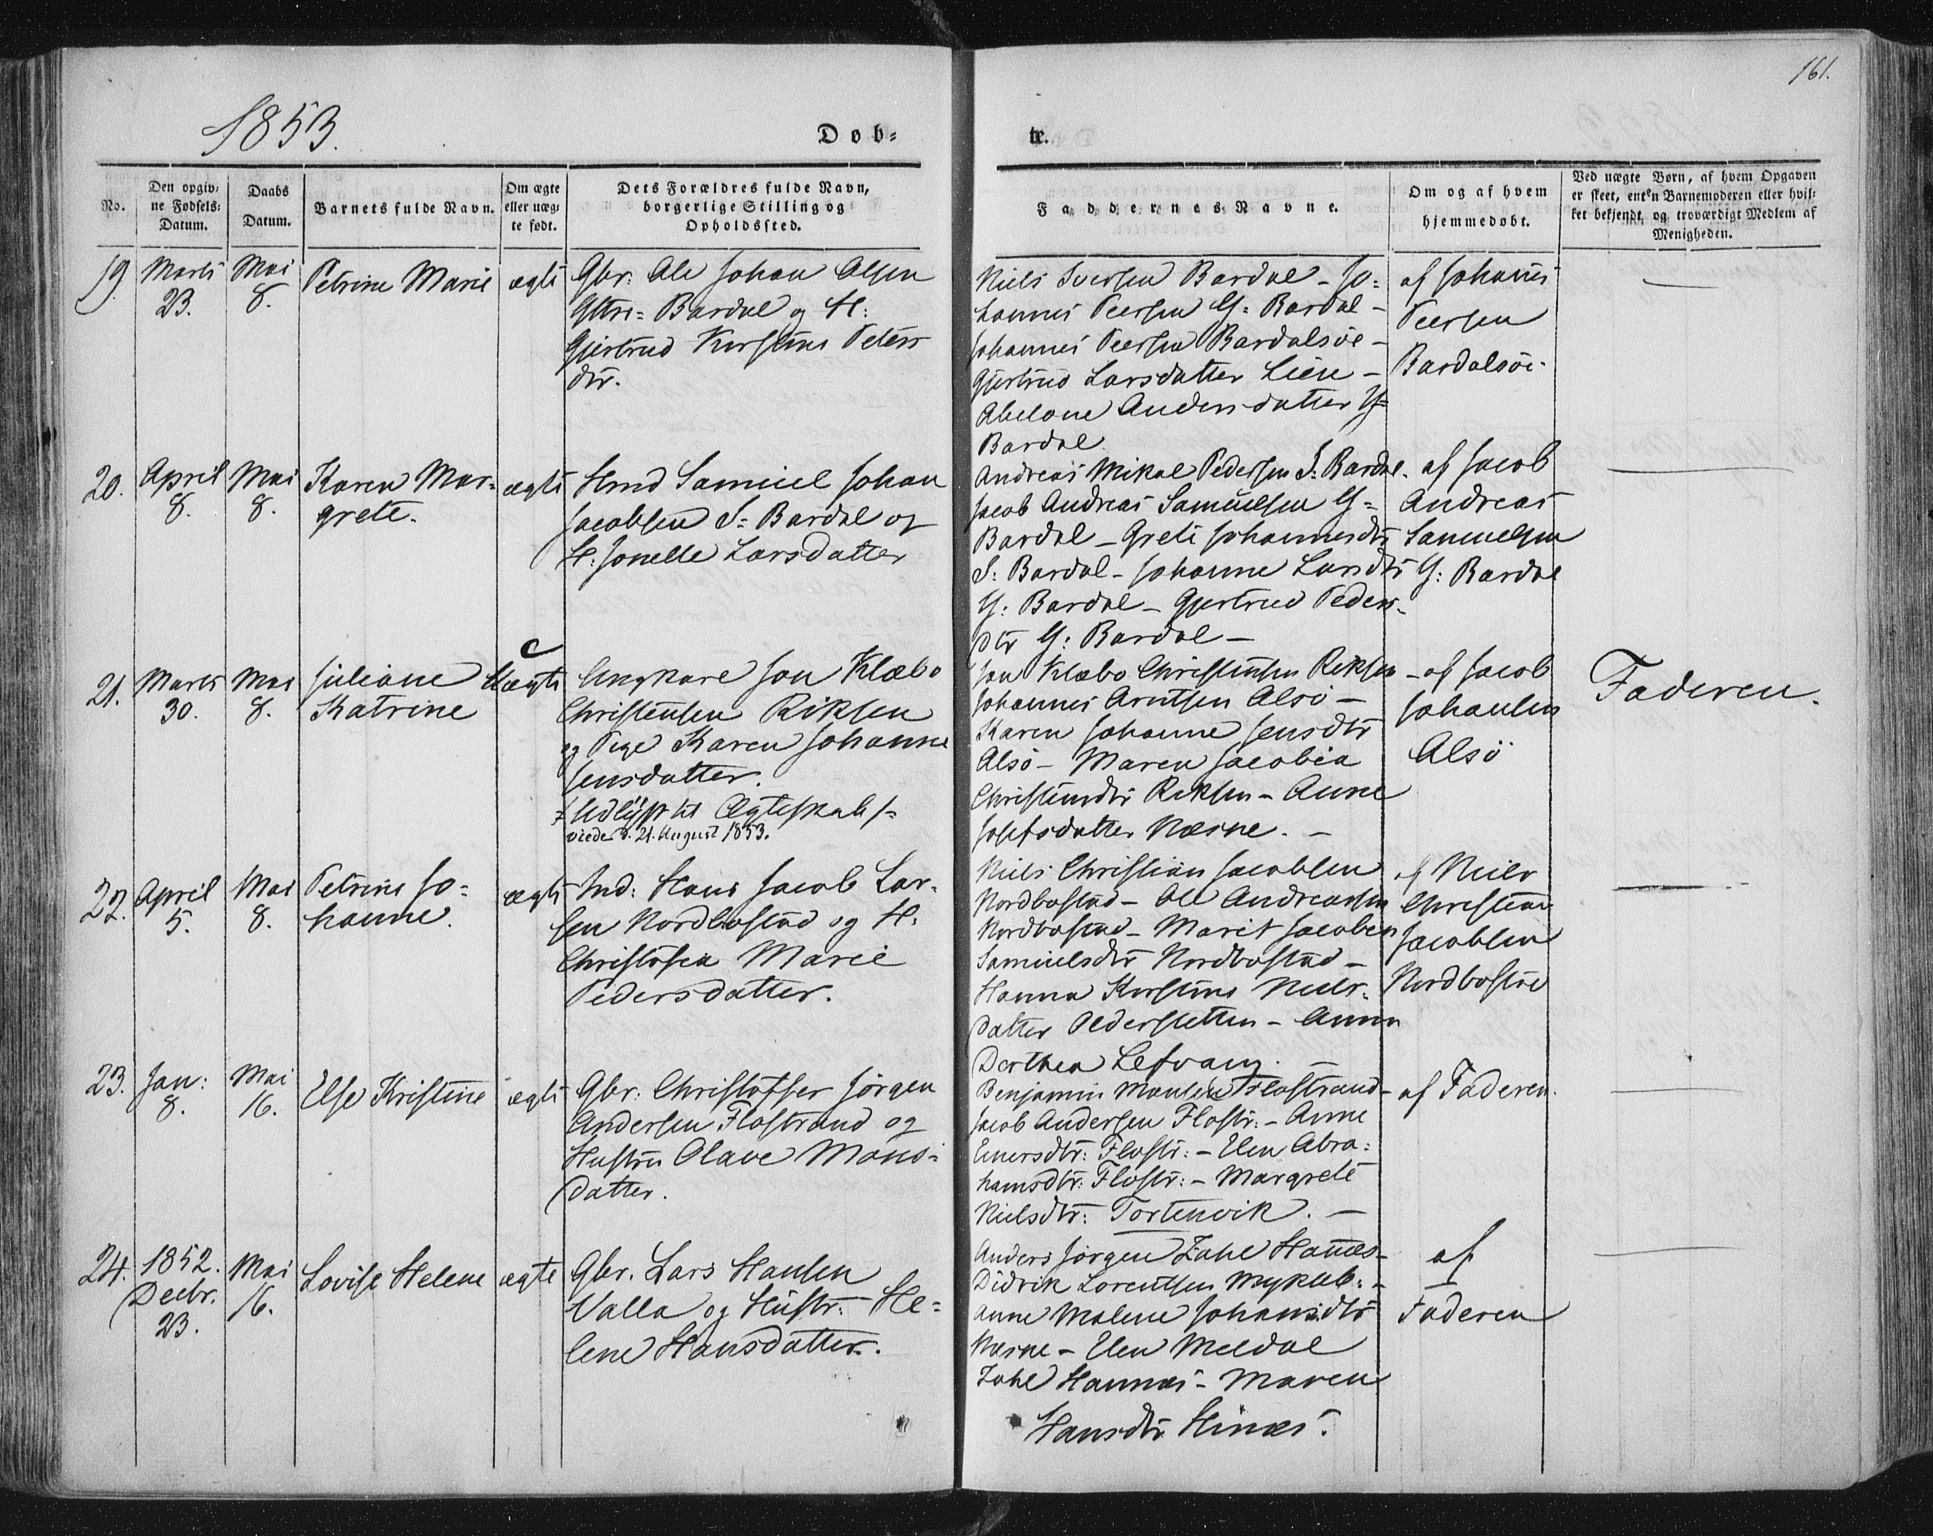 161.
1853.
Døb-
te.
No.
Den opgiv-
ne Fødsels-
Datum.
Daabs
Datum.
Barnets fulde Navn.
Om ægte
eller uæg-
te født.
Dets Forældres fulde Navn,
borgerlige Stilling og
Opholdssted.
Faddernes Navne.
Om og af hvem
hjemmedøbt.
Ved uægte Børn, af hvem Opgaven
er skeet, enten Barnemoderen eller hvil-
ket bekjendt og troværdigt Medlem af
Menigheden.
19.
Marts
23.
Mai
8.
Petrine Marie
ægte
Gbr: Ole Johan Olsen
Yttre= Bardal og H:
Gjertrud Kirstine Peters
dtr.
Niels Iversen Bardal - Jo=
hannes Peersen Y= Bardal -
Johannes Peersen Bardalsøe -
Gjertrud Larsdatter Lien -
Abelone Andersdatter Y=
Bardal
af Johannes
Peersen
Bardalsøe.
20.
April
8.
Mai
8.
Karen Mar-
grete.
ægte
Hmd Samuel Johan
Jacobsen I: Bardal og
H: Jonelle Larsdatter
Andreas Mikal Pedersen I: Bardal.
Jacob Andreas Samuelsen Y=
Bardal - Grete Johannesdtr
I: Bardal - Johanne Larsdtr
Y: Bardal - Gjertrud Peders-
dtr Y: Bardal -
af Jacob
Andreas
Samuelsen
Y: Bardal
21.
Marts
30.
Mai
8.
Juliane
Katrine
Uægte
Ungkarl Jon Klæbo
Christensen Riksen
og Pige Karen Johanne
Jensdatter.
Udlyst til Ægteskab
viede d. 21. August 1853.
Jon Klæbo Christensen Riksen
Johannes Arntsen Alsø -
Karen Johanne Jensdtr
Alsø - Maren Jacobia
Christensdtr Riksen - Anne
Josefsdatter Næsne. -
- af Jacob
Johansen
Alsø
Faderen.
22.
April
5.
Mai
8.
Petrine Jo=
hanne.
ægte
Ind: Hans Jacob Lar-
sen Nordbostad og H.
Christofea Marie
Pedersdatter.
Niels Christian Jacobsen
Nordbostad - Ole Andreassen
Nordbostad - Marit Jacobea
Samuelsdtr Nordbostad -
Hanna Kirstine Niels-
datter Pedersletten - Anna
Dorthea Lefvang. -
af Niels
Christian
Jacobsen
Nordbostad
23.
Jan:
8.
Mai
16.
Else Kristine
ægte
Gbr: Christoffer Jørgen
Andersen Flostrand og
Hustru Olave Mons-
datter.
Benjamin Monsen Flostrand -
Jacob Andersen Flostr: - Anne
Einersdtr: Flostr: - Elen Abra=
hamsdtr: Flostr: - Margrete
Nielsdtr: Tortenvik. -
af Faderen.
24.
1852.
Decbr.
23.
Mai
16.
Lovise Helene
ægte
Gbr. Lars Hansen
Valla og Hustr: He=
lene Hansdatter.
Anders Jørgen Zahl Hannæs-
Didrik Lorentsen Mykleb: -
Anne Malene Johansdtr
Næsne - Elen Meldal
Zahl Hannæs - Maren
Hansdtr Hinæs.
af
Faderen